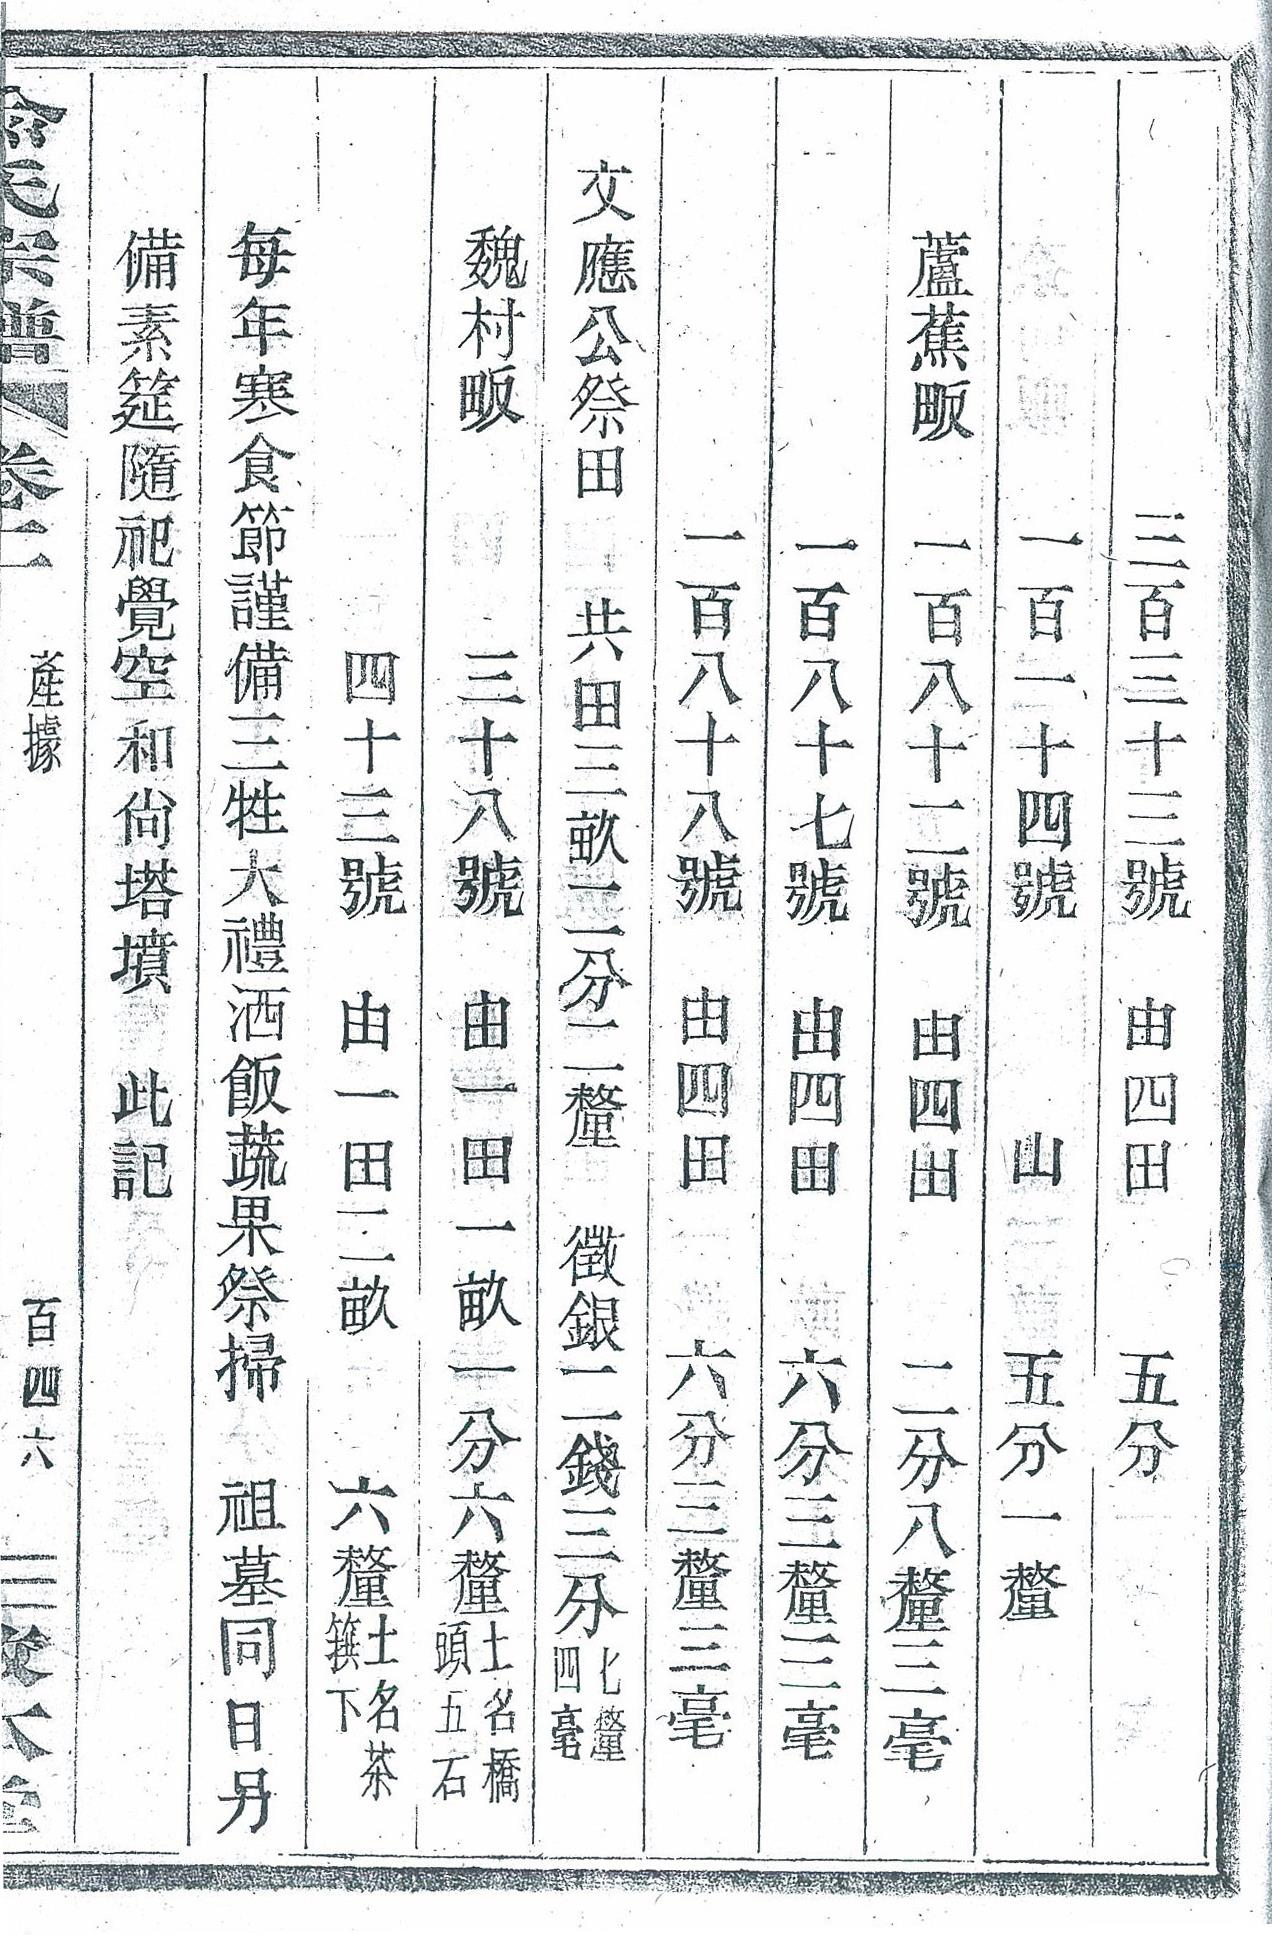 三百三十三號　由四田　五分
一百一十四號　山　五分一釐
蘆蕉畈　一百八十二號　由四田　二分八釐三毫
一百八十七號　由四田　六分三釐三毫
一百八十八號　由四田　六分三釐三毫
文應公祭田　共田三畝二分二釐　徵銀二錢三分七釐四毫
魏村畈　三十八號　由一田一畝一分六釐土名橋頭五石
四十三號　由一田二畝　六釐土名茶箕下
每年寒食節謹備三牲大禮酒飯蔬果祭掃　祖墓同日另
備素筵隨祀覺空和尙塔墳　此記
氏宗譜　卷二　產據　百四六